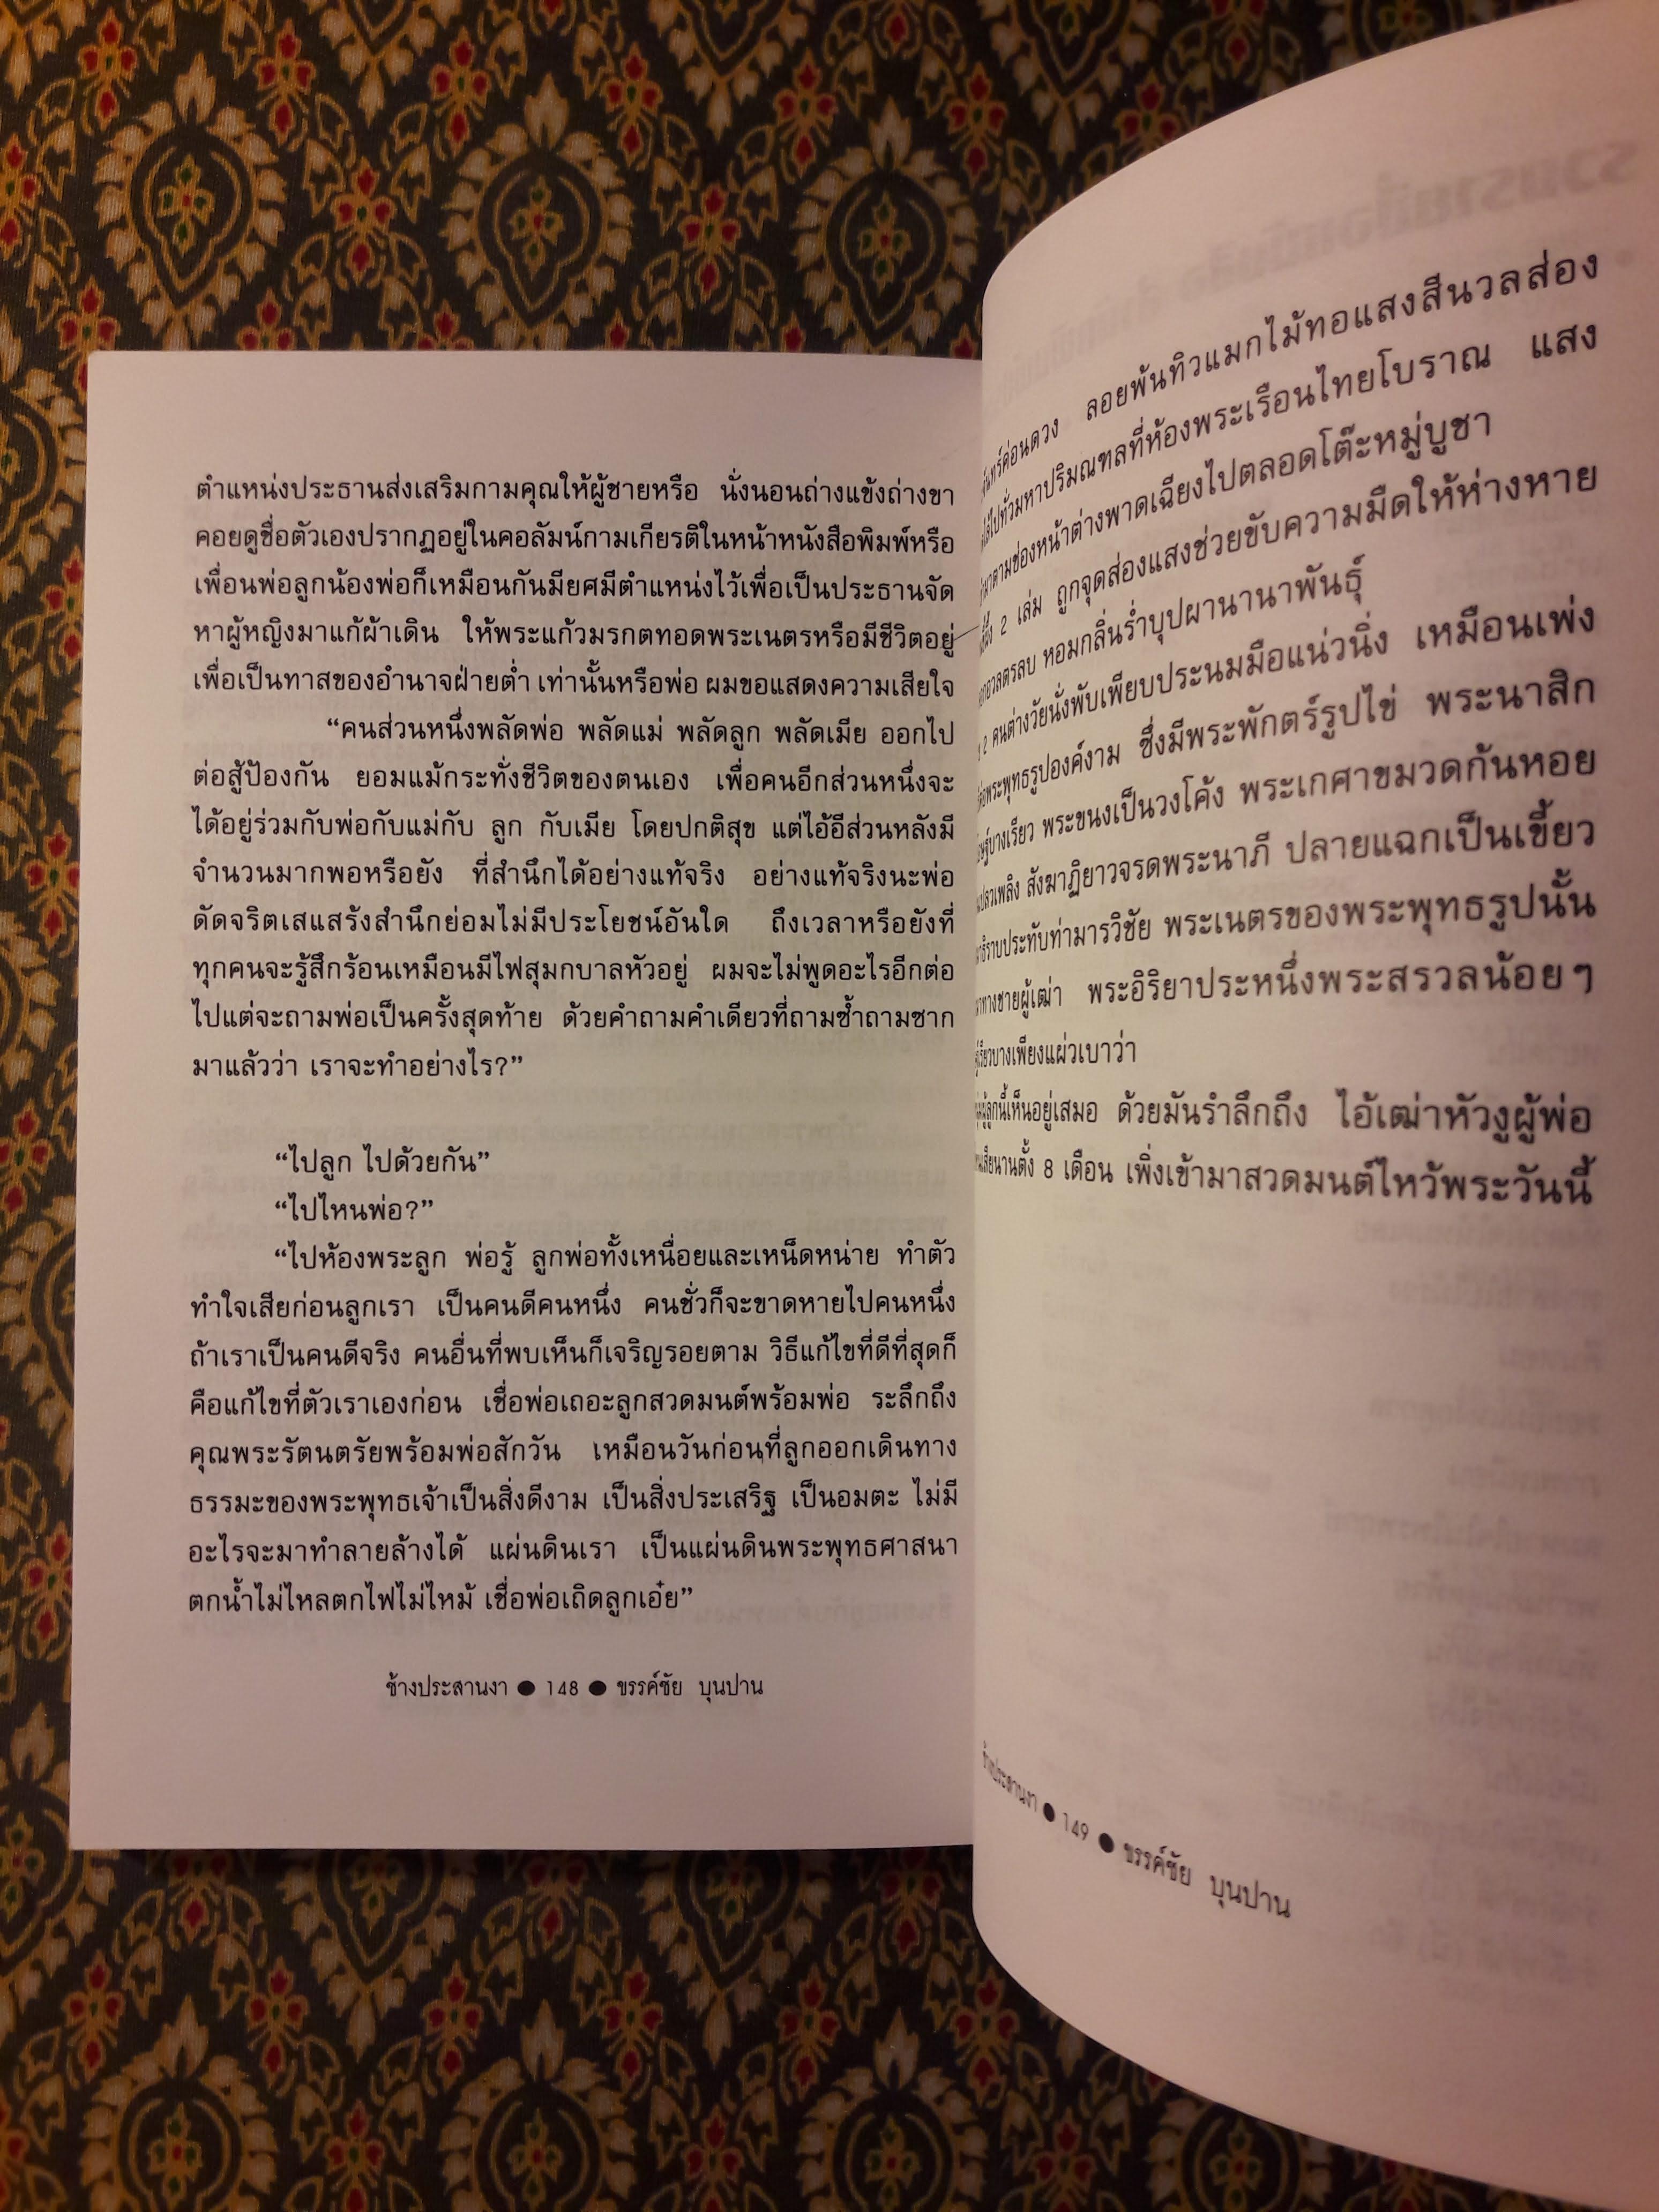 ตำแหน่งประธานส่งเสริมกามคุณให้ผู้ชายหรือ นั่งนอนถ่างแข้งถ่างขา
คอยดูชื่อตัวเองปรากฏอยู่ในคอลัมน์กามเกียรติในหน้าหนังสือพิมพ์หรือ
เพื่อนพ่อลูกน้องพ่อก็เหมือนกันมียศมีตำแหน่งไว้เพื่อเป็นประธานจัด
หาผู้หญิงมาแก้ผ้าเดิน ให้พระแก้วมรกตทอดพระเนตรหรือมีชีวิตอยู่
เพื่อเป็นทาสของอำนาจฝ่ายต่ำ เท่านั้นหรือพ่อ ผมขอแสดงความเสียใจ
“คนส่วนหนึ่งพลัดพ่อ พลัดแม่ พลัดลูก พลัดเมีย ออกไป
ต่อสู้ป้องกัน ยอมแม้กระทั่งชีวิตของตนเอง เพื่อคนอีกส่วนหนึ่งจะ
ได้อยู่ร่วมกับพ่อกับแม่กับ ลูก กับเมีย โดยปกติสุข แต่ไอ้อีส่วนหลังมี
จำนวนมากพอหรือยัง ที่สำนึกได้อย่างแท้จริง อย่างแท้จริงนะพ่อ
ดัดจริตเสแสร้งสำนึกย่อมไม่มีประโยชน์อันใด ถึงเวลาหรือยังที่
ทุกคนจะรู้สึกร้อนเหมือนมีไฟสุมกบาลหัวอยู่ ผมจะไม่พูดอะไรอีกต่อ
ไปแต่จะถามพ่อเป็นครั้งสุดท้าย ด้วยคำถามคำเดียวที่ถามซ้ำถามซาก
มาแล้วว่า เราจะทำอย่างไร?”
“ไปลูก ไปด้วยกัน”
“ไปไหนพ่อ?”
“ไปห้องพระลูก พ่อรู้ ลูกพ่อทั้งเหนื่อยและเหน็ดหน่าย ทำตัว
ทำใจเสียก่อนลูกเรา เป็นคนดีคนหนึ่ง คนชั่วก็จะขาดหายไปคนหนึ่ง
ถ้าเราเป็นคนดีจริง คนอื่นที่พบเห็นก็เจริญรอยตาม วิธีแก้ไขที่ดีที่สุดก็
คือแก้ไขที่ตัวเราเองก่อน เชื่อพ่อเถอะลูกสวดมนต์พร้อมพ่อ ระลึกถึง
คุณพระรัตนตรัยพร้อมพ่อสักวัน เหมือนวันก่อนที่ลูกออกเดินทาง
ธรรมะของพระพุทธเจ้าเป็นสิ่งดีงาม เป็นสิ่งประเสริฐ เป็นอมตะ ไม่มี
อะไรจะมาทำลายล้างได้ แผ่นดินเรา เป็นแผ่นดินพระพุทธศาสนา
ตกน้ำไม่ไหลตกไฟไม่ไหม้ เชื่อพ่อเถิดลูกเอ๋ย”
ช้างประสานงา ● 148 ● ขรรค์ชัย บุนปาน
ค่อนดวง ลอยพ้นทิวแมกไม้ทอแสงสีนวลส่อง
ไปทั่วมหาปริมณฑลที่ห้องพระเรือนไทยโบราณ แสง
มาตามช่องหน้าต่างพาดเฉียงไปตลอดโต๊ะหมู่บูชา
2 เล่ม ถูกจุดส่องแสงช่วยขับความมืดให้ห่างหาย
หอมกลิ่นร่ำบุปผานานาพันธุ์
2 คนต่างวัยนั่งพับเพียบประนมมือแน่วนิ่ง เหมือนเพ่ง
พระพุทธรูปองค์งาม ซึ่งมีพระพักตร์รูปไข่ พระนาสิก
บางเรียว พระขนงเป็นวงโค้ง พระเกศาขมวดก้นหอย
เปลวเพลิง สังฆาฏิยาวจรดพระนาภี ปลายแฉกเป็นเขี้ยว
ประทับท่ามารวิชัย พระเนตรของพระพุทธรูปนั้น
ทางชายผู้เฒ่า พระอิริยาประหนึ่งพระสรวลน้อยๆ
บางเพียงแผ่วเบาว่า
ลูกนี้เห็นอยู่เสมอ ด้วยมันรำลึกถึง ไอ้เฒ่าหัวงูผู้พ่อ
เสียนานตั้ง 8 เดือน เพิ่งเข้ามาสวดมนต์ไหว้พระวันนี้
ช้างประสานงา ● 149 ● ขรรค์ชัย บุนปาน